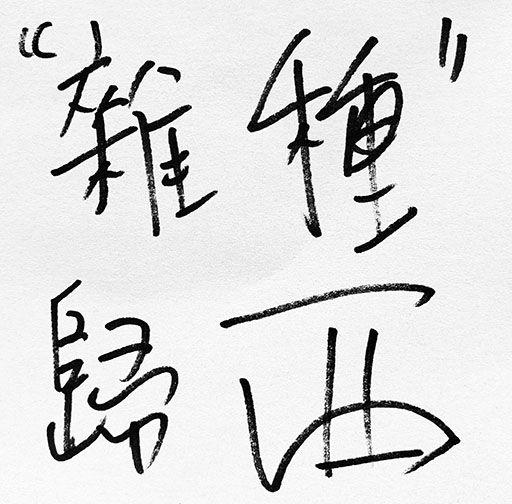 “雜種”
歸西